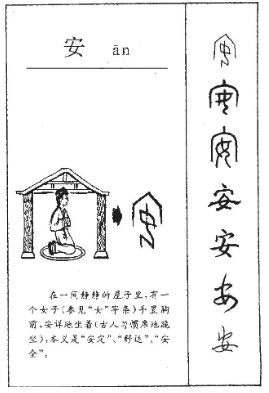 安 ān
在一间静静的屋子里，有一
个女子（参见“女”字条）手置胸
前，安详地坐着（古人习惯席地跪
坐）；本义是“安定”、“舒适”、“安
全”。
安
安
安
安
安
安
安